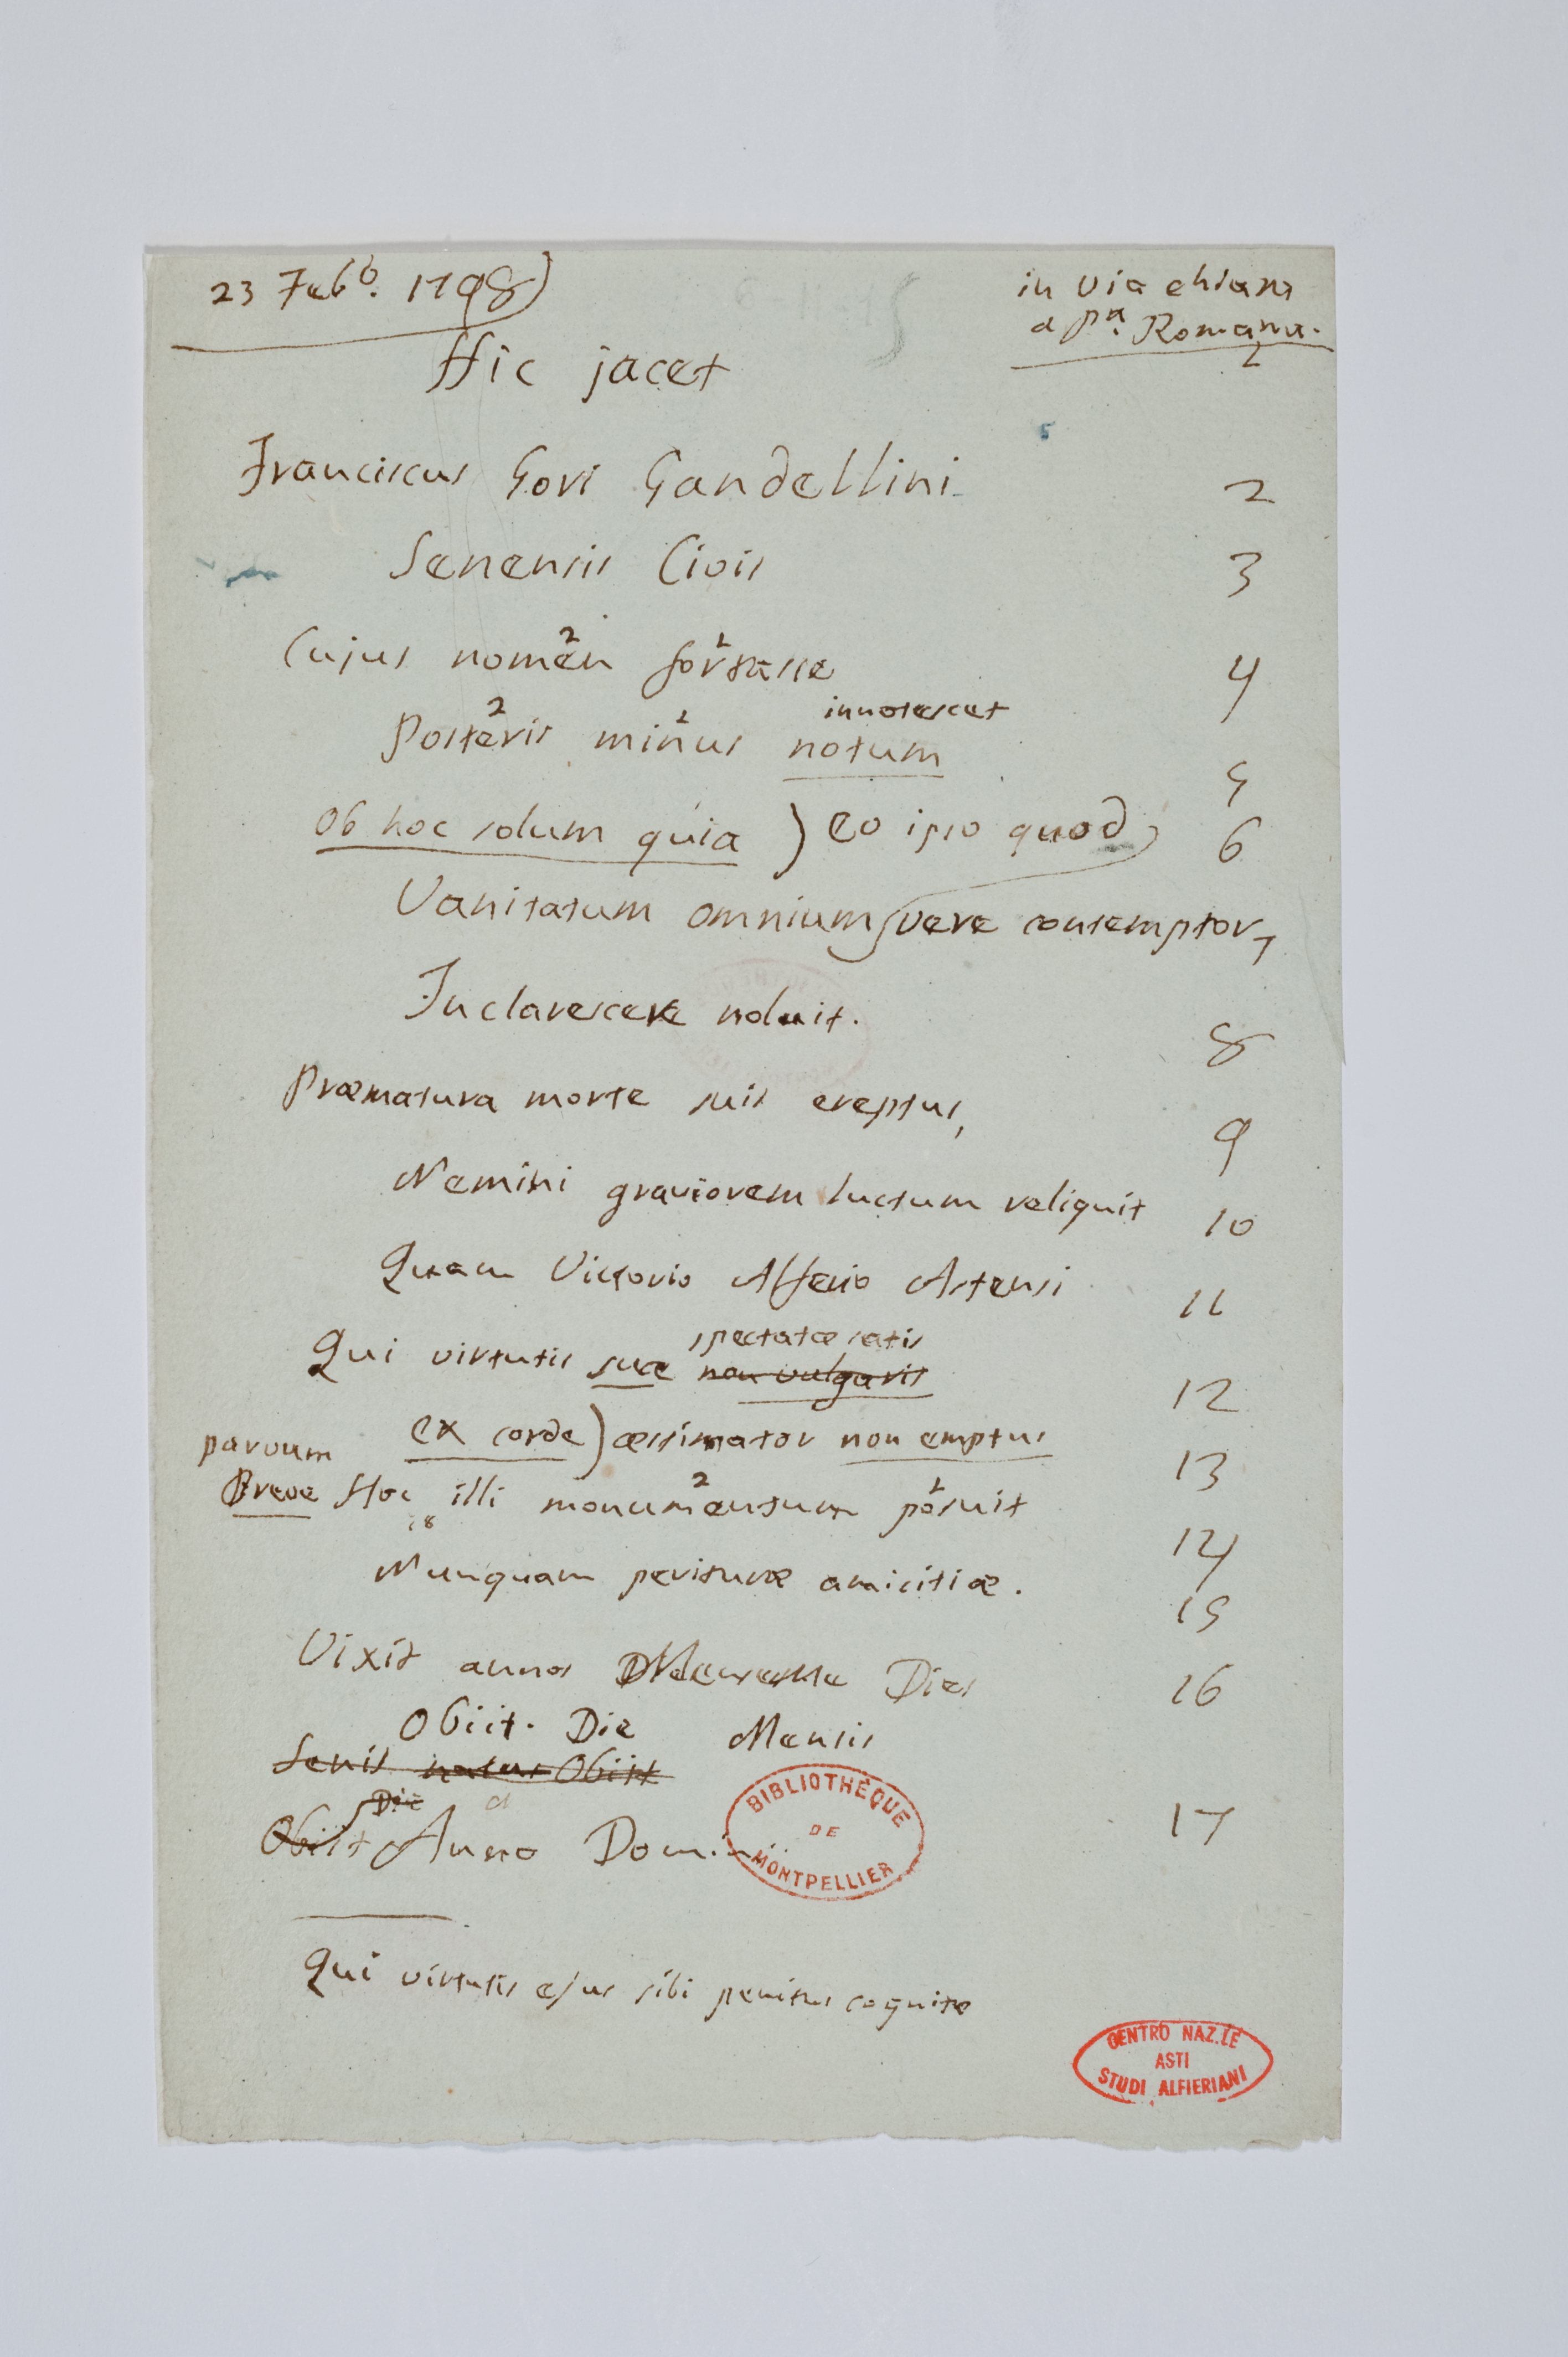 23 Febb.o 1798)
in via chiara
a p.a Romana.
Hic jacet 1
Franciscus Gori Gandellini 2
Senensis Civis 3
Cujus nomen 2 forsasse 1 4
innotescet
Posteris 2 minus 1 notum 5
Ob hoc solum quia ) eo ipso quod 6
Vanitatum omnium vere contemptor, 7
Inclarescere noluit. 8
Præmatura morte suis ereptus, 9
Nemini graviorem luctum reliquit 10
Quam Victorio Alferio Astensi 11
spectatæ satis
Qui virtutis suæ non vulgaris 12
ex corde ) æstimator non emptus 13
parvum
Breve Hoc illi monumentum 2 posuit 1 14
Nunquam perituræ amicitiæ. 15
Vixit annos Dies 16
Obiit. Die Mensis
Senis natus Obiit
Die
Obiit Anno Dom. 17
BIBLIOTHÈQUE
DE
MONTPELLIER
Qui virtutis ejus sibi penitus cognitæ
CENTRO NAZ.LE
ASTI
STUDI ALFIERIANI